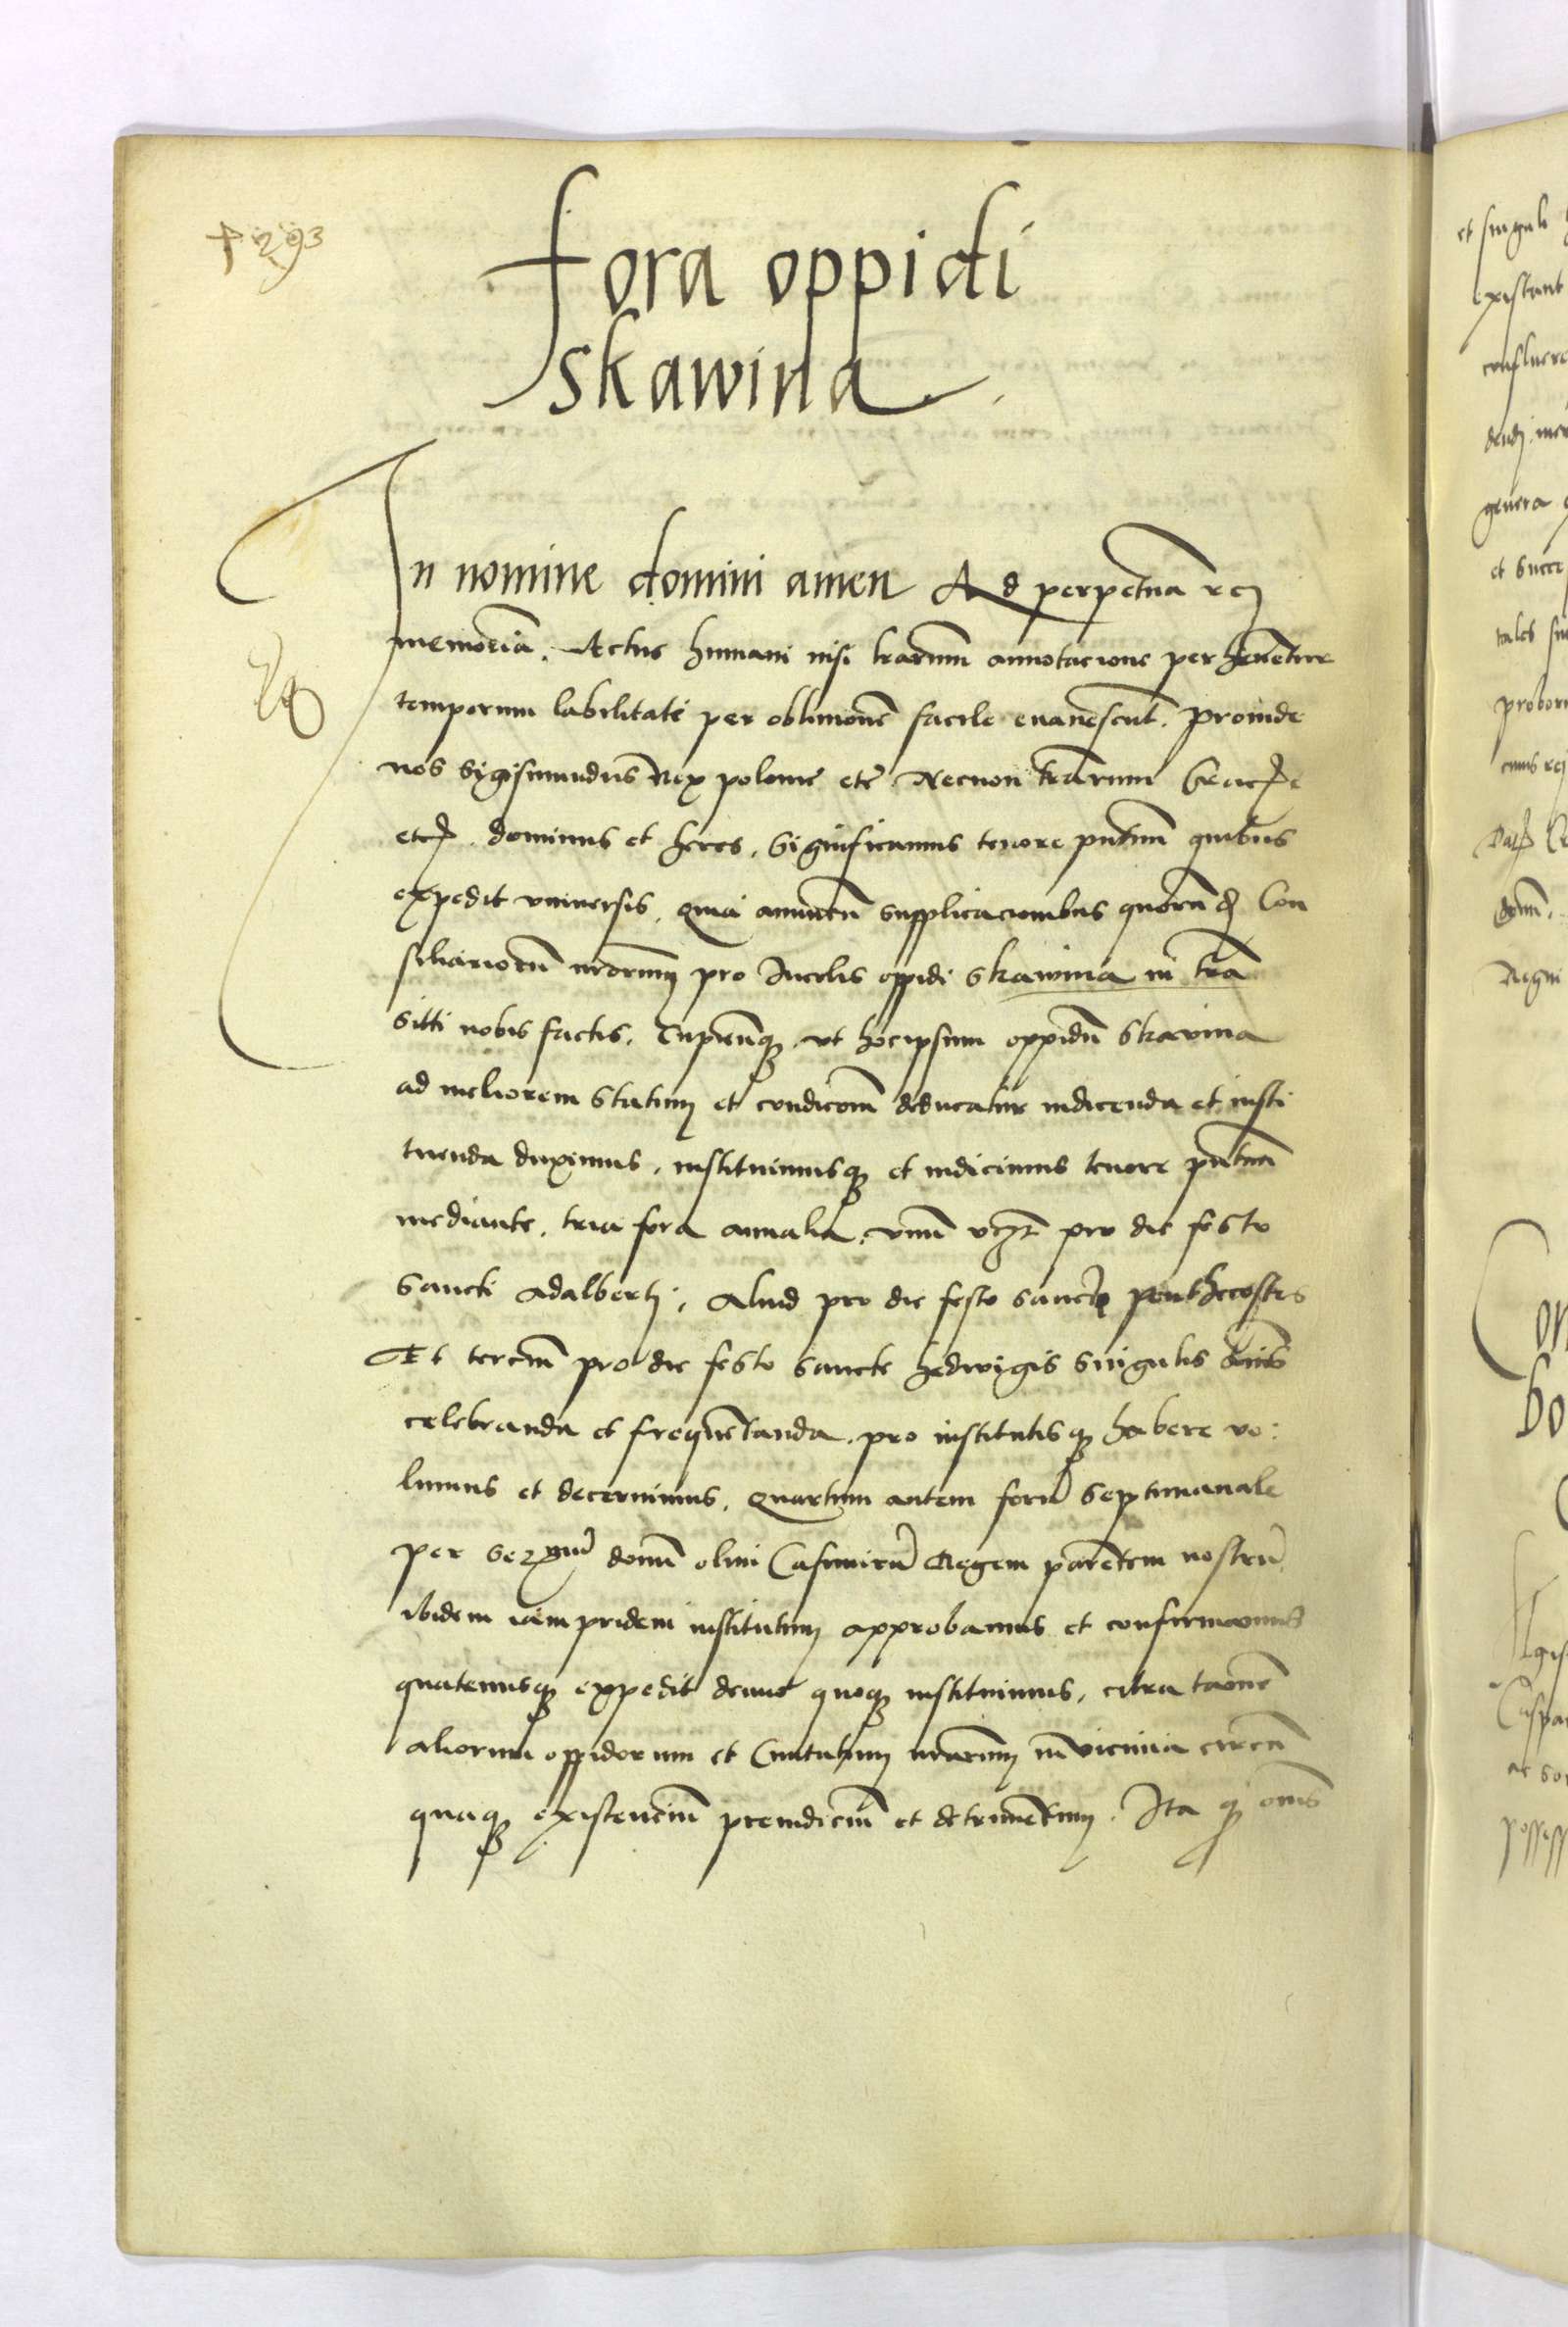 293
fora oppidi
skawina
In nomine domini amen Ad perpetuā rei
memoriā. Actus humani nisi l̄rarum annotacione perhenentur
temporum labilitate per oblivionē facile evanescūt. proinde
nos Sigismundus Rex polonie etc̄ Necnon terrarum Crac̄ɉe
etc. dominus et heres. Significamus tenore pn̄tium quibus
expedit universis. quia annuen̄ supplicacionibus quorundā Con
siliariorū nr̄orum pro Incolis oppidi skawina in t̄ra
sitti nobis factis. Cupienq̄ ut hocipsum oppidū Skavina
ad meliorem statum et condicōm deducatur indicenda et insti
tuenda duximus. instituimusq̄ et indicimus tenore pn̄tium
mediante. tria fora annalia. unū vcz pro die festo
sancti Adalberti. Aliud pro die festo sancto penthecostes
Et terciū pro die festo sancte hedwigis singulis annis
celebranda et frequētanda. pro institutisq̄ habere vo:
lumus et decernimus. quartum autem forū septimanale
per Ser^mū domū olim Casimirū Regem parētem nostrū
ibidem iampridem institutum approbamus et confirmamus
quatenusq̄ expedit denuo quoq̄ instituimus. citra tamē
aliorum oppidorum et Civitatum nr̄arum in vicinia circū
quaq̄ existenciū preiudiciū et detrimētum. Ita q̄ om̄s
et singuli
existunt
confluere
genera
et
tales
Regni